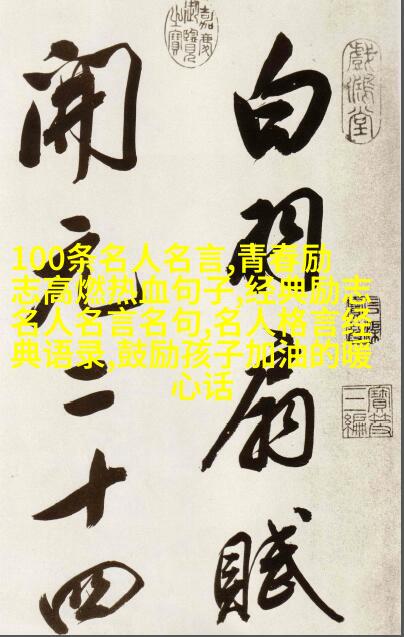 白羽扇賦
開元二十四
100条名人名言,青春励
志高燃热血句子,经典励志
名人名言名句,名人格言经
典语录,鼓励孩子加油的暖
心话
嘉慶
御覽
之寶
戲鴻堂
寶笈
三編